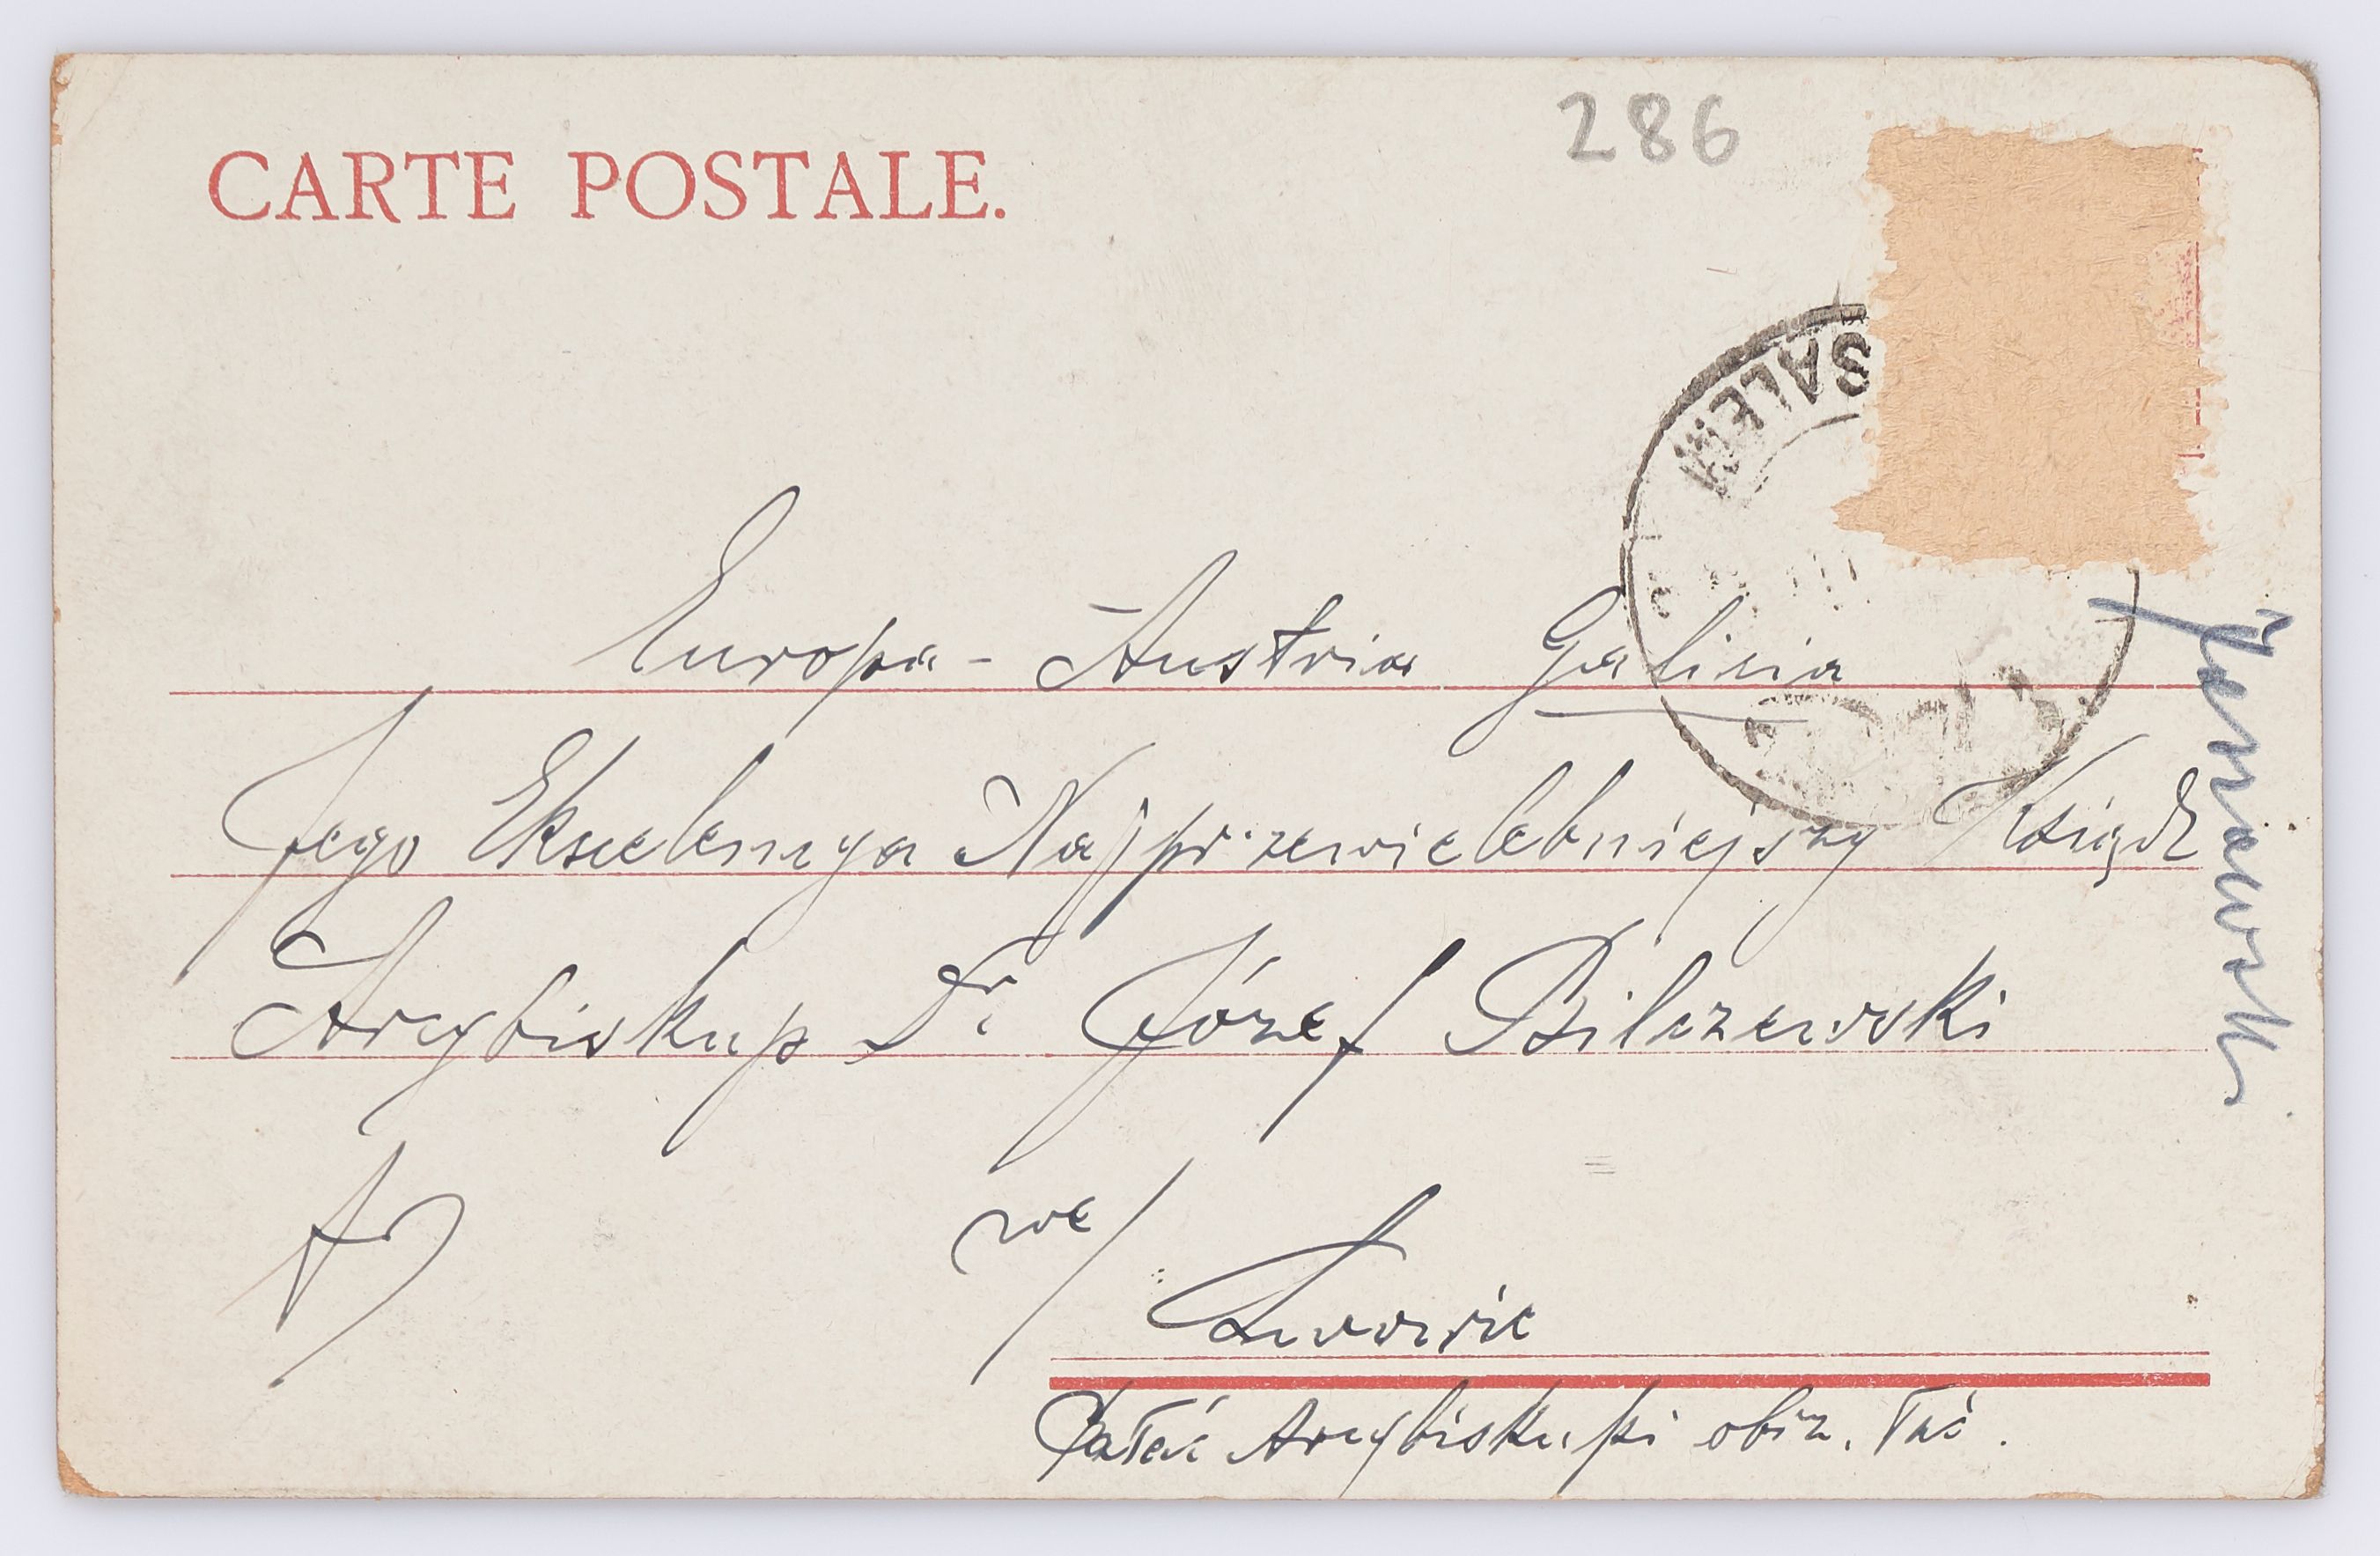 CARTE POSTALE.
286
SALEM
Europa - Austria Galicia
Jego Ekscelencya Najprzewielebniejszy Ksiądz
Arcybiskup Dr. Józef Bilczewski
we
Lwowie
Pałac Arcybiskupi obrz. łać.